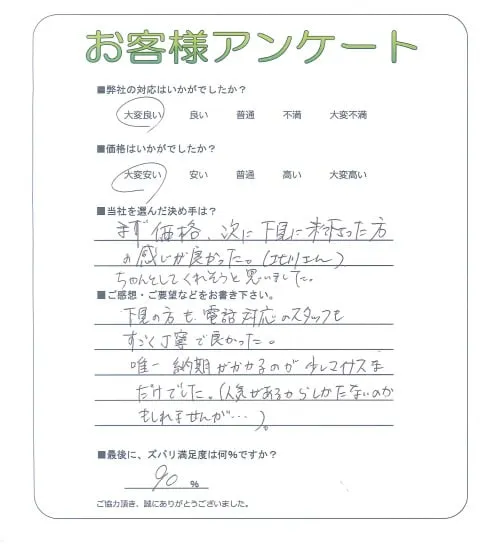 お客様アンケート
■弊社の対応はいかがでしたか？
大変良い 良い 普通 不満 大変不満
■価格はいかがでしたか？
大変安い 安い 普通 高い 大変高い
■当社を選んだ決め手は？
まず価格、次に下見に来て下さった方
の感じが良かった。(北川さん)
ちゃんとしてくれそうと思いました。
■ご感想・ご要望などをお書き下さい。
下見の方も、電話対応のスタッフも
すごく丁寧で良かった。
唯一納期がかかるのが少しマイナスな
だけでした。(人気があるからしかたないのか
もしれませんが…)。
■最後に、ズバリ満足度は何%ですか？
90 %
ご協力頂き、誠にありがとうございました。